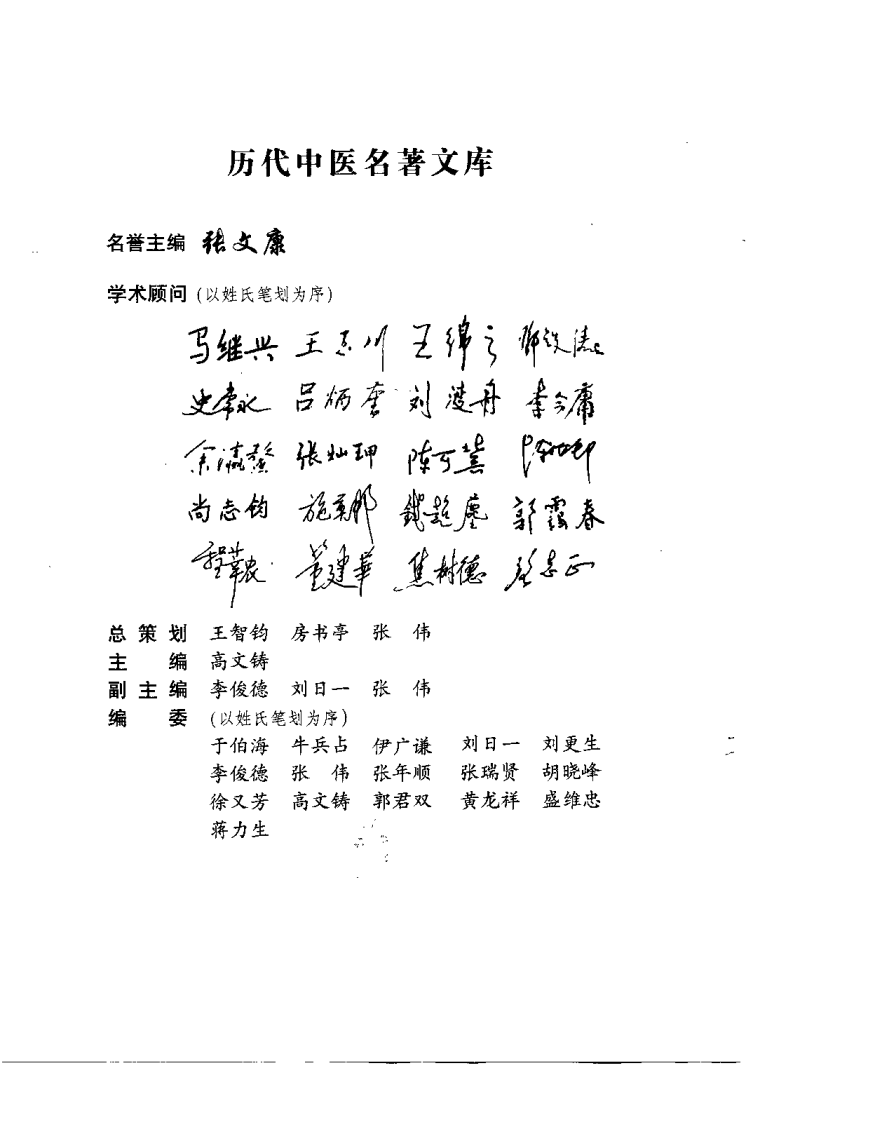 历代中医名著文库
名誉主编 张文康
学术顾问 (以姓氏笔划为序)
马继兴 王玉川 王绵之 邓铁涛
史常永 吕炳奎 刘渡舟 李今庸
余瀛鳌 张灿玾 陈可冀
尚志钧 施奠邦 钱超尘 郭霭春
程莘农 董建華 焦树德 路志正
总策划 王智钧 房书亭 张 伟
主 编 高文铸
副主编 李俊德 刘日一 张 伟
编 委 (以姓氏笔划为序)
于伯海 牛兵占 伊广谦 刘日一 刘更生
李俊德 张 伟 张年顺 张瑞贤 胡晓峰
徐又芳 高文铸 郭君双 黄龙祥 盛维忠
蒋力生